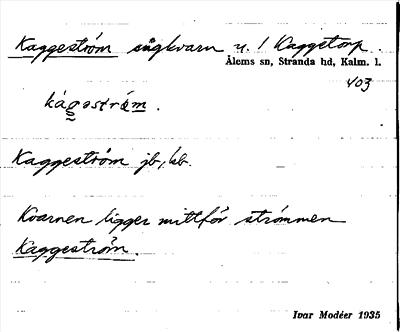 Kaggeström sågkvarn u. 1 Kaggetorp.
Ålems sn, Stranda hd, Kalm. l.
403
kágəstrǿm.
Kaggeström jb, kb.
Kvarnen ligger mittför strömmen
Kaggeström.
Ivar Modéer 1935